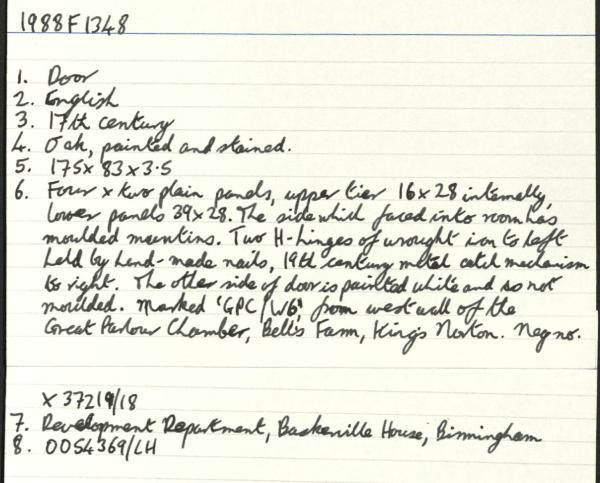 1988F1348
1. Door
2. English
3. 17th century
4. Oak, painted and stained.
5. 175x 83 x 3.5
6. Four x two plain panels, upper tier 16x28 internally,
lower panels 39x28. The side which faced into room has
moulded muntins. Two H-hinges of wrought iron to left
held by hand-made nails, 19th century metal catch mechanism
to right. The other side of door is painted white and so not
moulded. Marked 'GPC/W6', from west wall of the
Great Parlour Chamber, Bells Farm, King's Norton. Neg no.
X 37219/18
7. Development Department, Baskerville House, Birmingham
8. 00S4369/LH